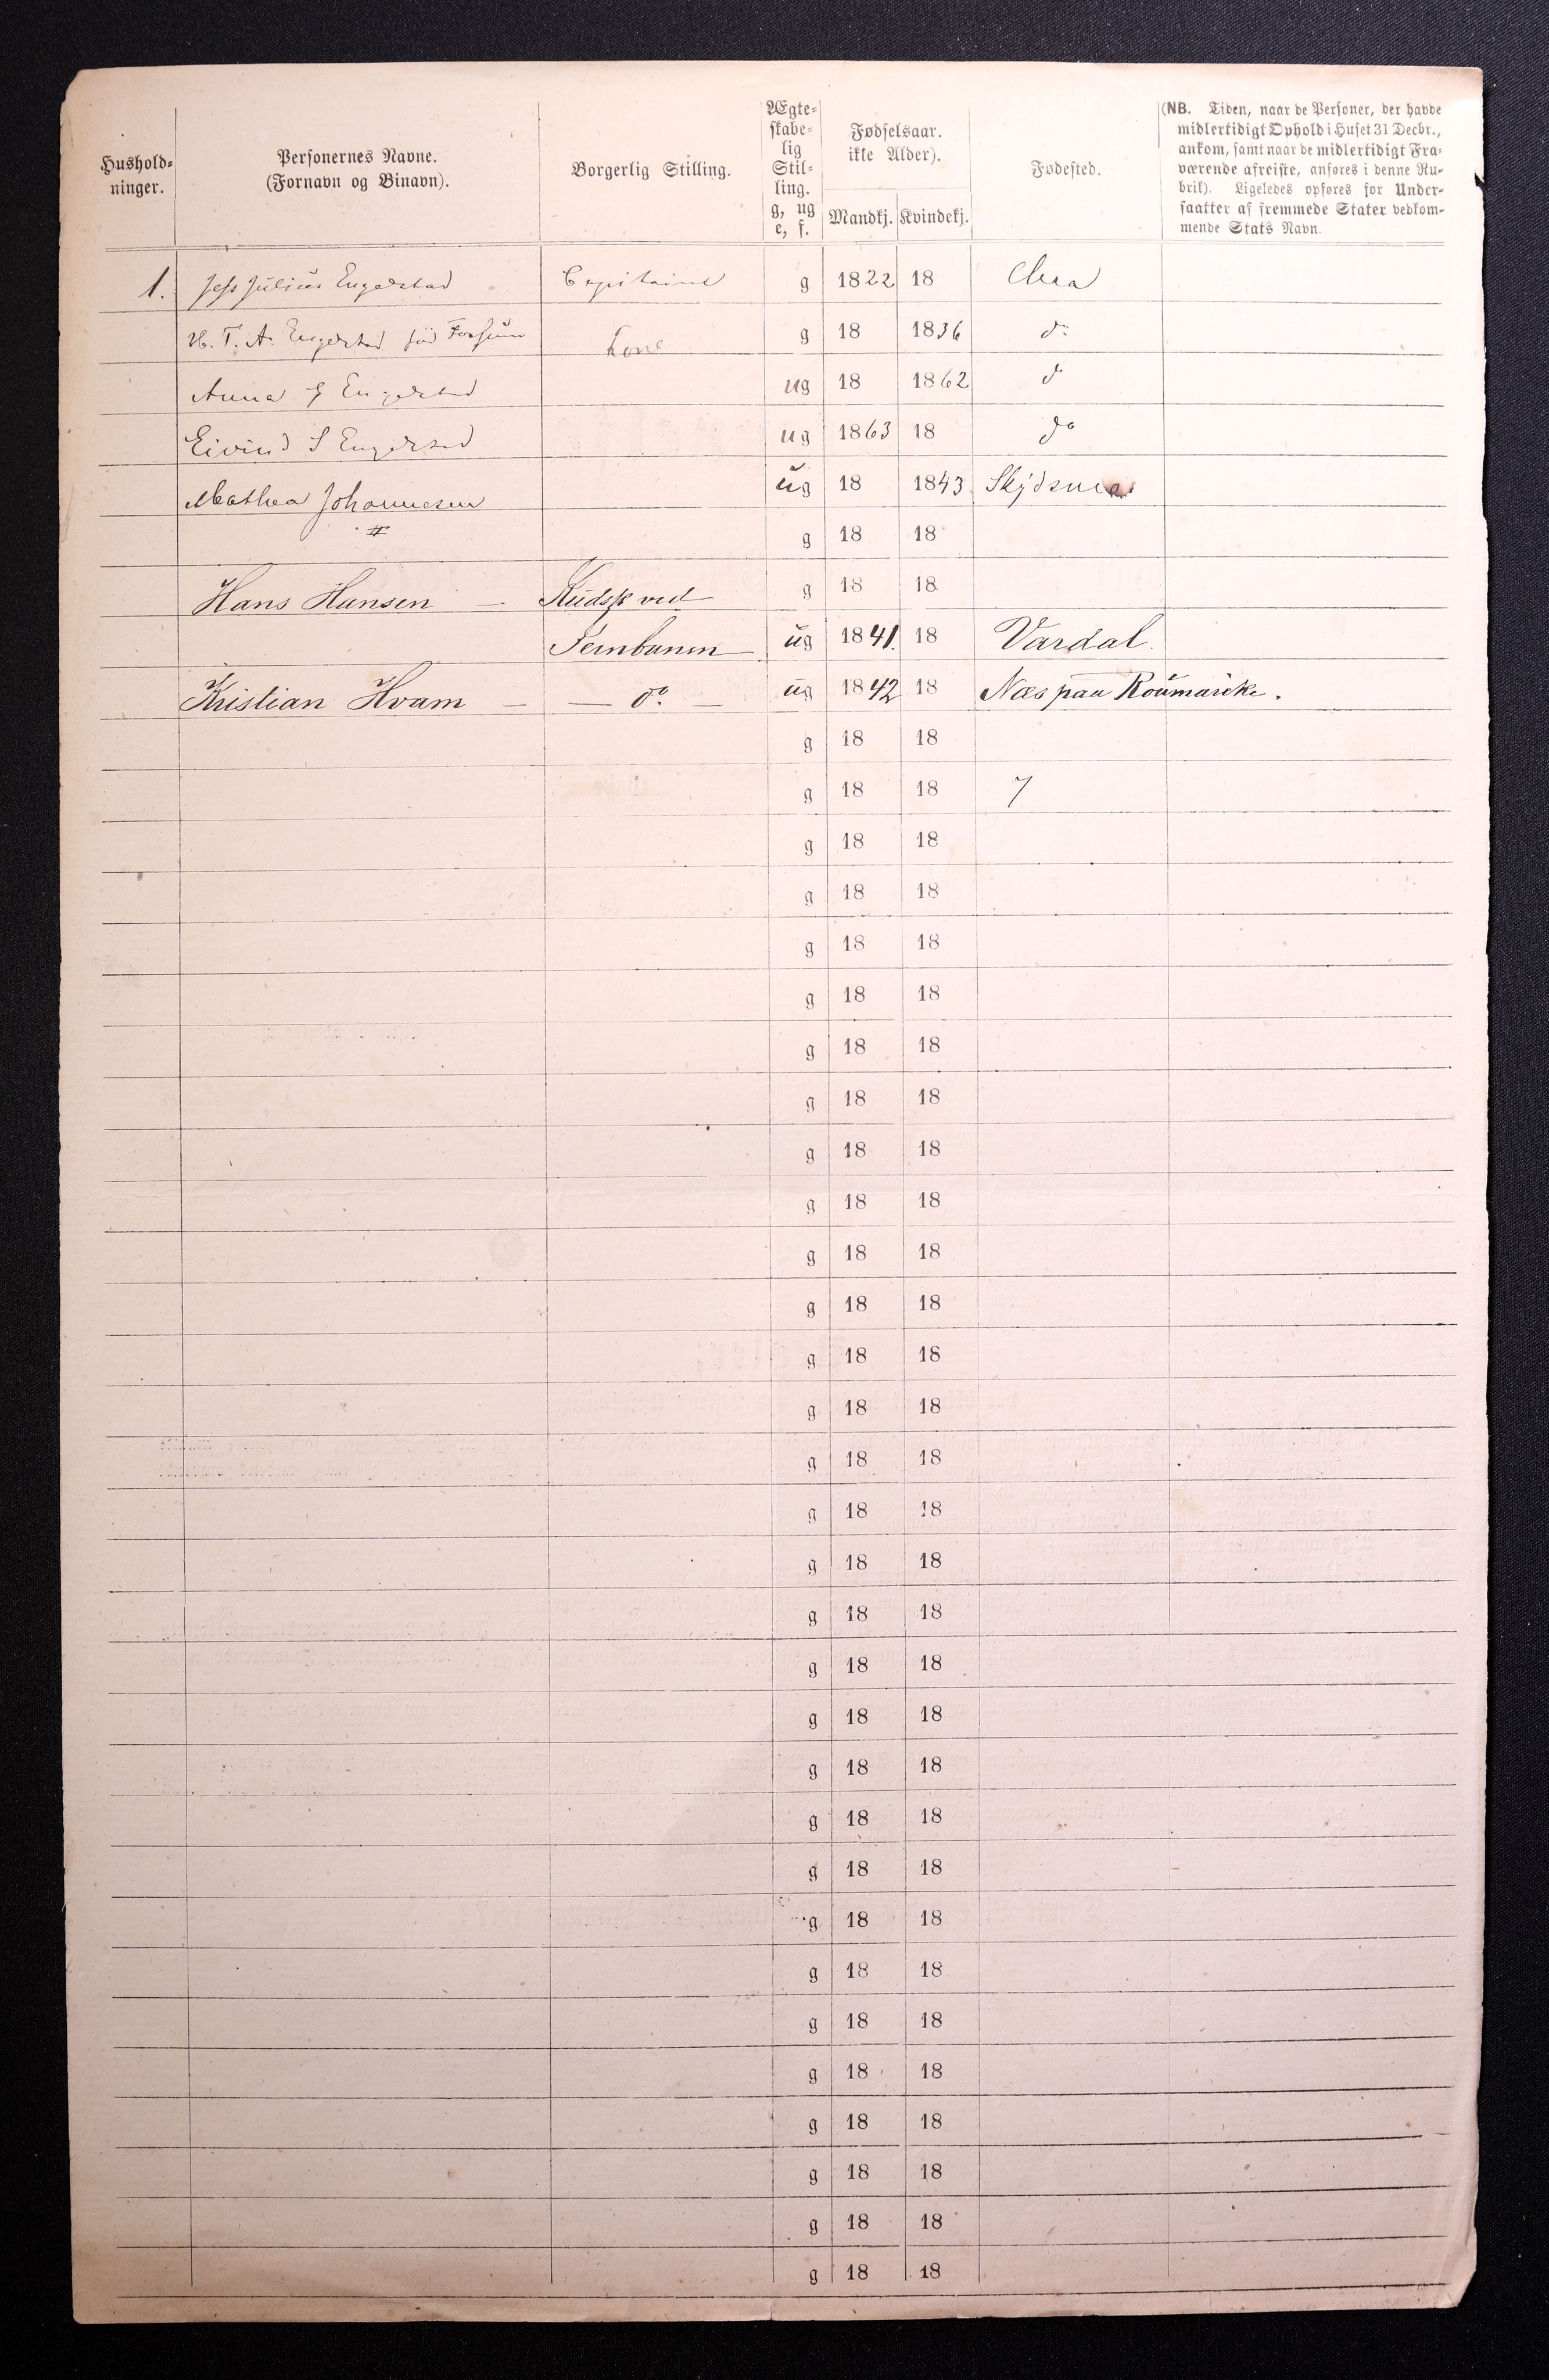 Hushold-
ninger.
Personernes Navne.
(Fornavn og Binavn).
Borgerlig Stilling.
Ægte-
skabe-
lig
Stil-
ling.
g, ug
e, f.
Fødselsaar.
ikke Alder).
Mandkj. Kvindekj.
Fødested.
(NB. Tiden, naar de Personer, der havde
midlertidigt Ophold i Huset 31 Decbr.,
ankom, samt naar de midlertidigt Fra-
værende afreiste, anføres i denne Ru-
brik). Ligeledes opføres for Under-
saatter af fremmede Stater vedkom-
mende Stats Navn.
1. Jess Julius Engelstad Capitaine g 1822 18 Chra
H. T. A. Engelstad fød Kone g 18 1836 do
Anna Engelstad ug 18 1862 do
Eivind S Engelstad ug 1863 18 do
Mathea Johannesen ug 18 1843 Skydsmo
g 18 18
Hans Hansen — Kudsk ved g 18 18
Jernbanen ug 1841. 18 Vardal.
Kristian Hvam — — do. — ug 1842 18 Næs paa Roümarike.
g 18 18
g 18 18 7
g 18 18
g 18 18
g 18 18
g 18 18
g 18 18
g 18 18
g 18 18
g 18 18
g 18 18
g 18 18
g 18 18
g 18 18
g 18 18
g 18 18
g 18 18
g 18 18
g 18 18
g 18 18
g 18 18
g 18 18
g 18 18
g 18 18
g 18 18
g 18 18
g 18 18
g 18 18
g 18 18
g 18 18
g 18 18